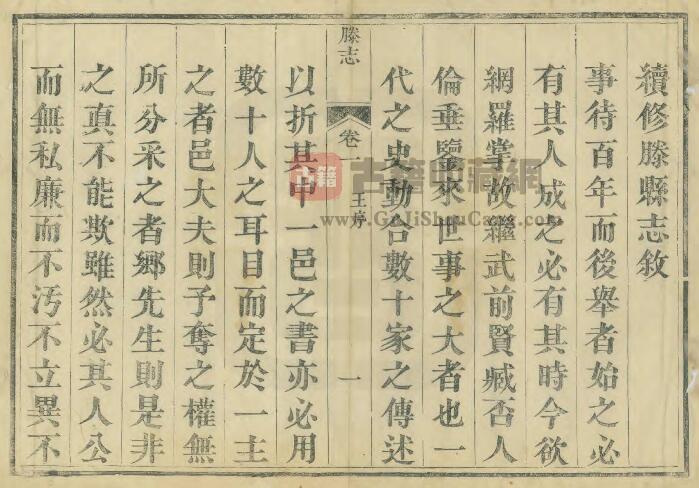 續修滕縣志敘
事待百年而後舉者始之必
有其人成之必有其時今欲
網羅掌故繼武前賢臧否人
倫垂鑒來世事之大者也一
代之史動合數十家之傳述
滕志
卷一
王序
一
以折其中一邑之書亦必用
數十人之耳目而定於一主
之者邑大夫則予奪之權無
所分采之者鄉先生則是非
之真不能欺雖然必其人公
而無私廉而不汚不立異不
古籍
古籍收藏網
www.GuJiShouCang.com